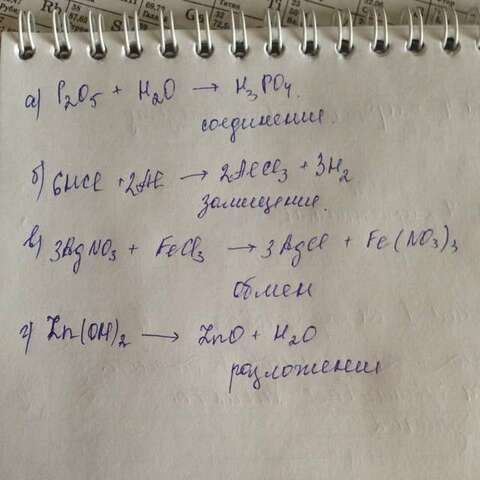 а) P₂O₅ + H₂O → H₃PO₄.
соединение.
б) 6HCl + 2Al → 2AlCl₃ + 3H₂
замещение.
в) 3AgNO₃ + FeCl₃ → 3AgCl + Fe(NO₃)₃
обмен
г) Zn(OH)₂ → ZnO + H₂O
разложение